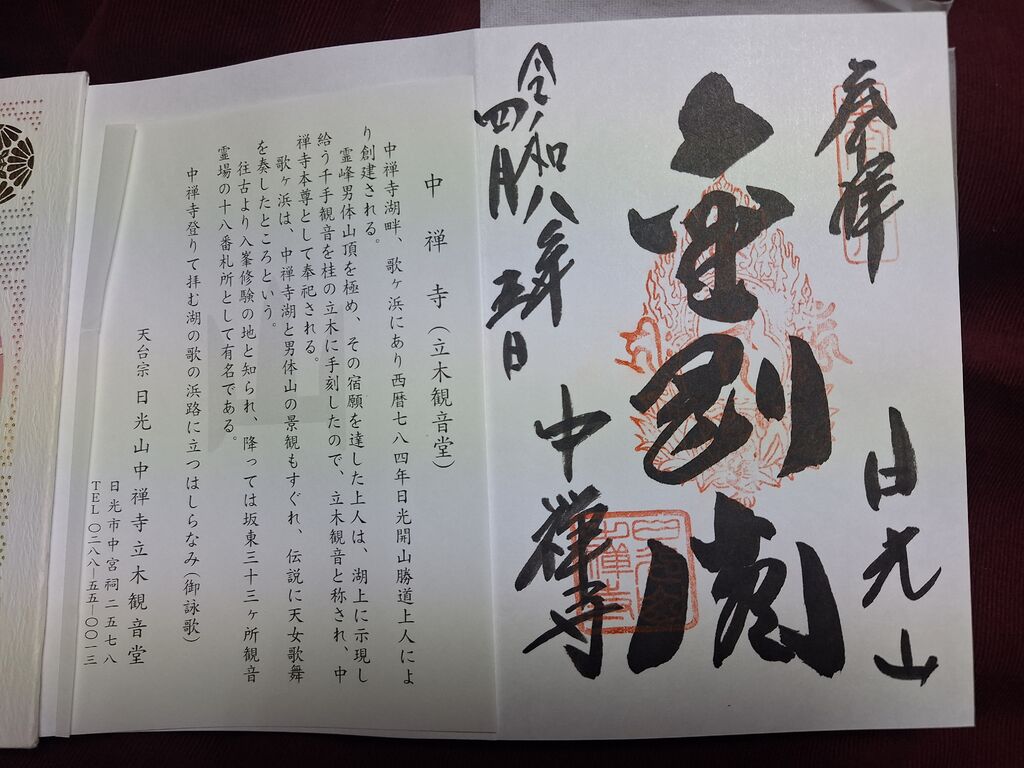 奉拝
日光山
金剛
中禅寺
令和八年
四月五日
中禅寺(立木観音堂)
中禅寺湖畔、歌ヶ浜にあり西暦七八四年日光開山勝道上人によ
り創建される。
霊峰男体山頂を極め、その宿願を達した上人は、湖上に示現し
給う千手観音を桂の立木に手刻したので、立木観音と称され、中
禅寺本尊として奉祀される。
歌ヶ浜は、中禅寺湖と男体山の景観もすぐれ、伝説に天女歌舞
を奏したところという。
往古より入峯修験の地と知られ、降っては坂東三十三ヶ所観音
霊場の十八番札所として有名である。
中禅寺登りて拝む湖の歌の浜路に立つはしらなみ(御詠歌)
天台宗 日光山中禅寺立木観音堂
日光市中宮祠二五七八
TEL〇二八八―五五―〇〇一三